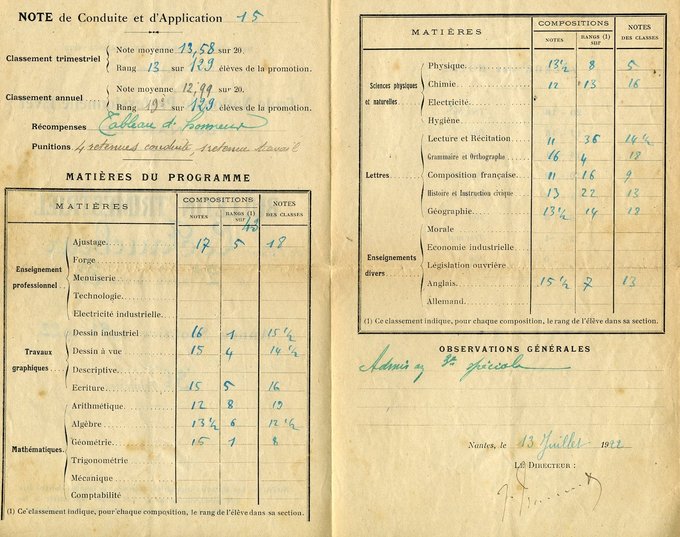 NOTE de Conduite et d'Application 15
Classement trimestriel
Note moyenne 13,58 sur 20.
Rang 13 sur 129 élèves de la promotion.
Classement annuel
Note moyenne 12,99 sur 20.
Rang 19e sur 129 élèves de la promotion.
Récompenses Tableau d'honneur
Punitions 4 retenues conduite, 1 retenue travail
MATIÈRES DU PROGRAMME
MATIÈRES COMPOSITIONS NOTES DES CLASSES
NOTES RANGS (1) sur 43
Enseignement professionnel.
Ajustage 17 5 18
Forge
Menuiserie
Technologie
Electricité industrielle
Travaux graphiques.
Dessin industriel 16 1 15 1/2
Dessin à vue 15 4 14 1/2
Descriptive
Ecriture 15 5 16
Mathématiques.
Arithmétique 12 8
Algèbre 13 1/2 6 12 1/2
Géométrie 15 1 8
Trigonométrie
Mécanique
Comptabilité
(1) Ce classement indique, pour chaque composition, le rang de l'élève dans sa section.
MATIÈRES COMPOSITIONS NOTES DES CLASSES
NOTES RANGS (1) sur
Sciences physiques et naturelles.
Physique 13 1/2 8 5
Chimie 12 13 16
Electricité
Hygiène
Lettres
Lecture et Récitation 11 36 14 1/2
Grammaire et Orthographe 16 4 18
Composition française 11 16 9
Histoire et Instruction civique 13 22 13
Géographie 13 1/2 14 12
Enseignements divers.
Morale
Economie industrielle
Législation ouvrière
Anglais 15 1/2 7 13
Allemand
(1) Ce classement indique, pour chaque composition, le rang de l'élève dans sa section.
OBSERVATIONS GÉNÉRALES
Admis en 3e spéciale
Nantes, le 13 Juillet 1922
LE DIRECTEUR :